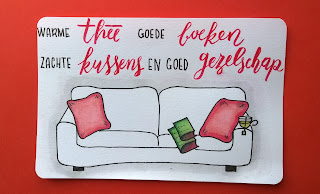 WARME thee GOEDE boeken
ZACHTE kussens EN GOED gezelschap